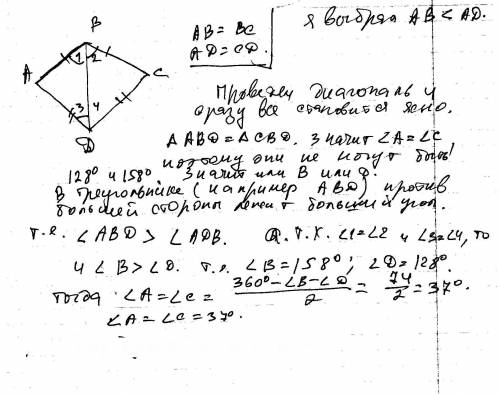 B
A
C
D
1 2
3 4
AB = BC
AD = CD.
я выбрал AB < AD.
Проведем диагональ и
сразу все становится ясно.
Δ ABD = Δ CBD. Значит ∠A = ∠C
поэтому они не могут быть
128° и 158°. Значит или B или D.
В треугольнике (например ABD) против
большей стороны лежит больший угол.
т.е. ∠ABD > ∠ADB. Т.к. ∠1=∠2 и ∠3=∠4, то
и ∠B > ∠D. т.е. ∠B = 158°; ∠D = 128°.
Тогда ∠A = ∠C = 360° - ∠B - ∠D / 2 = 74 / 2 = 37°.
∠A = ∠C = 37°.